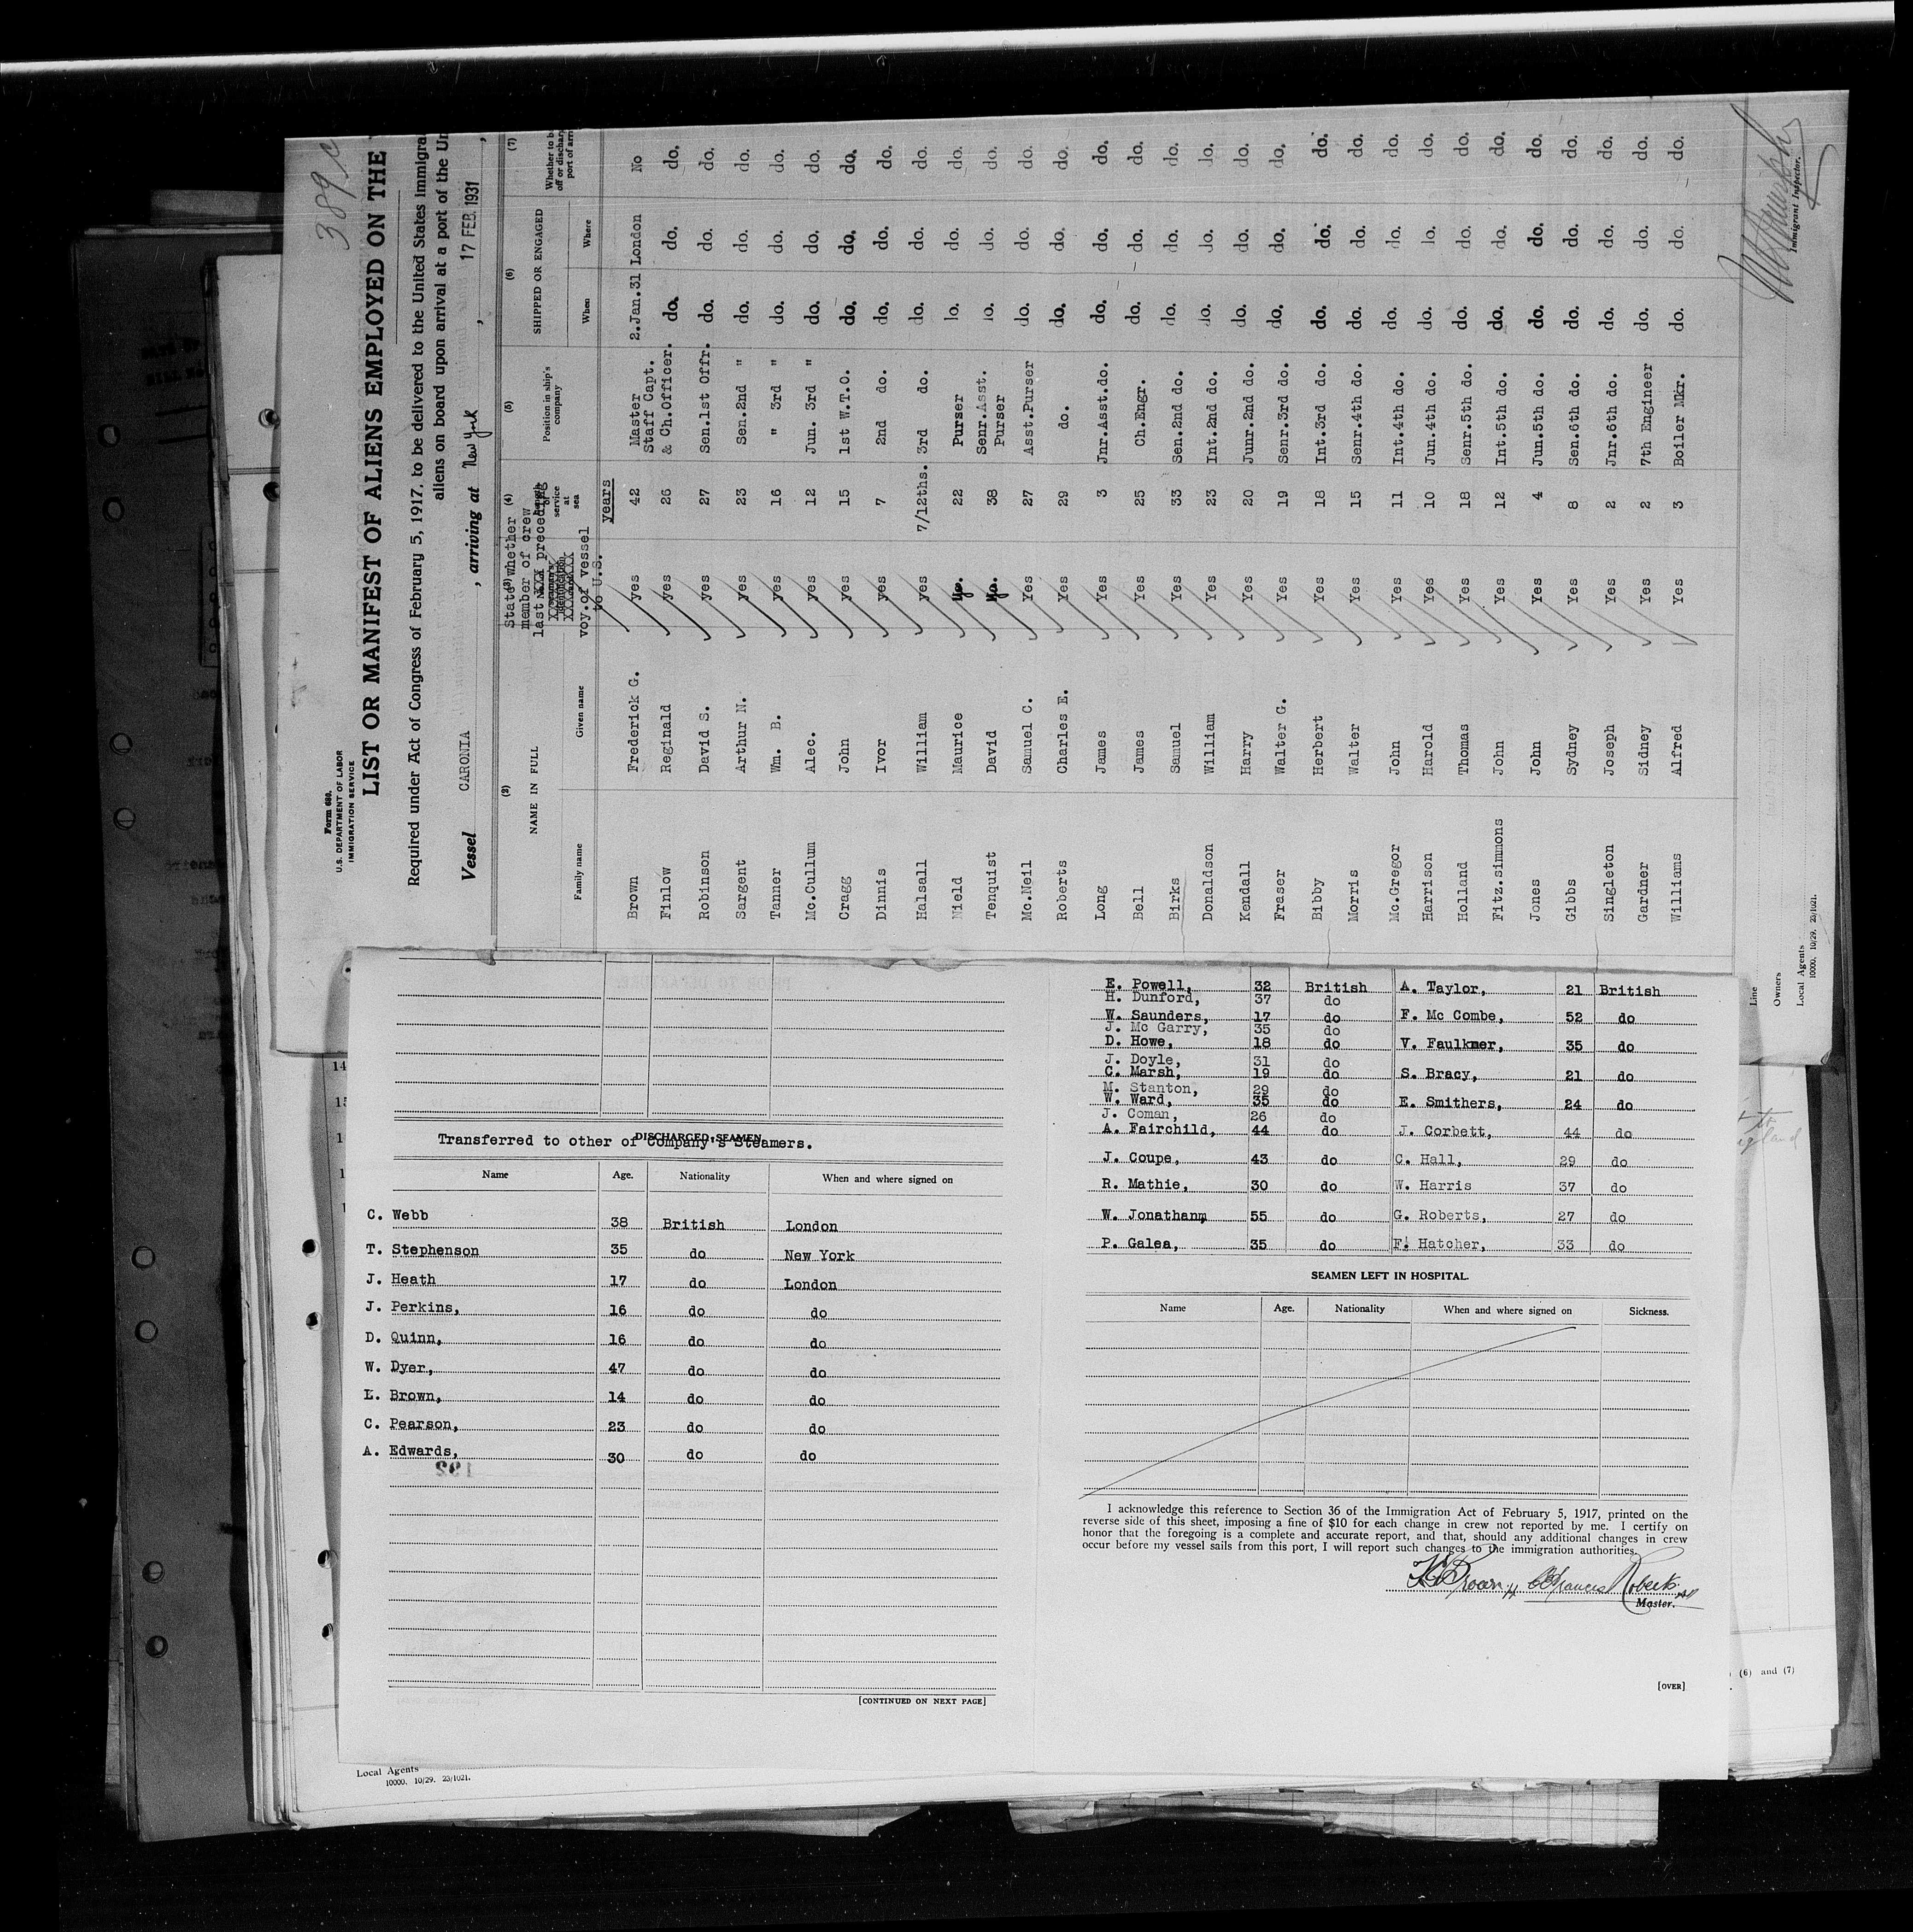 389
Form 680.
U.S. DEPARTMENT OF LABOR
IMMIGRATION SERVICE
LIST OR MANIFEST OF ALIENS EMPLOYED ON THE
Required under Act of Congress of February 5, 1917, to be delivered to the United States immigra
aliens on board upon arrival at a port of the Un
Vessel CARONIA , arriving at New York , 17 FEB. 1931 ,
(2) (3) (4) (5) (6) (7)
NAME IN FULL State whether member of crew last preceding voy. of vessel to U.S. Length of service at sea Position in ship's company SHIPPED OR ENGAGED Whether to b off or dischar port of arri
Family name Given name When Where
years
Brown Frederick G. yes 42 Master 2.Jan.31 London No
Finlow Reginald yes 26 Staff Capt. & Ch.Officer. do. do. do.
Robinson David S. yes 27 Sen.1st Offr. do. do. do.
Sargent Arthur N. yes 23 Sen.2nd " do. do. do.
Tanner Wm. B. yes 16 " 3rd " do. do. do.
Mc.Cullum Alec. yes 12 Jun. 3rd " do. do. do.
Cragg John yes 15 1st W.T.O. do. do. do.
Dinnis Ivor yes 7 2nd do. do. do. do.
Halsall William yes 7/12ths. 3rd do. do. do. do.
Nield Maurice 22 Purser do. do. do.
Tenquist David 38 Senr.Asst. Purser do. do. do.
Mc.Neil Samuel C. Yes 27 Asst.Purser do. do. do.
Roberts Charles E. Yes 29 do. do. do. do.
Long James Yes 3 Jnr.Asst.do. do. do. do.
Bell James Yes 25 Ch.Engr. do. do. do.
Birks Samuel Yes 33 Sen.2nd do. do. do. do.
Donaldson William Yes 23 Int.2nd do. do. do. do.
Kendall Harry Yes 20 Junr.2nd do. do. do. do.
Fraser Walter G. Yes 19 Senr.3rd do. do. do. do.
Bibby Herbert Yes 18 Int.3rd do. do. do. do.
Morris Walter Yes 15 Senr.4th do. do. do. do.
Mc.Gregor John Yes 11 Int.4th do. do. do. do.
Harrison Harold Yes 10 Jun.4th do. do. do. do.
Holland Thomas Yes 18 Senr.5th do. do. do. do.
Fitz.simmons John Yes 12 Int.5th do. do. do. do.
Jones John Yes 4 Jun.5th do. do. do. do.
Gibbs Sydney Yes 8 Sen.6th do. do. do. do.
Singleton Joseph Yes 2 Jnr.6th do. do. do. do.
Gardner Sidney Yes 2 7th Engineer do. do. do.
Williams Alfred Yes 3 Boiler Mkr. do. do. do.
Immigrant Inspector.
Line
Owners
Local Agents
10000, 10/29, 23/1021.
DISCHARGED SEAMEN
Transferred to other of Company's Steamers.
Name Age. Nationality When and where signed on
C. Webb 38 British London
T. Stephenson 35 do New York
J. Heath 17 do London
J. Perkins, 16 do do
D. Quinn, 16 do do
W. Dyer, 47 do do
E. Brown, 14 do do
C. Pearson, 23 do do
A. Edwards, 30 do do
192
[CONTINUED ON NEXT PAGE]
E. Powell, 32 British A. Taylor, 21 British
H. Dunford, 37 do
W. Saunders, 17 do F. Mc Combe, 52 do
J. Mc Garry, 35 do
D. Howe, 18 do V. Faulkmer, 35 do
J. Doyle, 31 do
C. Marsh, 19 do S. Bracy, 21 do
M. Stanton, 29 do
W. Ward, 35 do E. Smithers, 24 do
J. Coman, 26 do
A. Fairchild, 44 do J. Corbett, 44 do
J. Coupe, 43 do C. Hall, 29 do
R. Mathie, 30 do W. Harris 37 do
W. Jonathan, 55 do G. Roberts, 27 do
P. Galea, 35 do F. Hatcher, 33 do
SEAMEN LEFT IN HOSPITAL.
Name Age. Nationality When and where signed on Sickness.
I acknowledge this reference to Section 36 of the Immigration Act of February 5, 1917, printed on the
reverse side of this sheet, imposing a fine of $10 for each change in crew not reported by me. I certify on
honor that the foregoing is a complete and accurate report, and that, should any additional changes in crew
occur before my vessel sails from this port, I will report such changes to the immigration authorities.
Master.
[OVER]
(6) and (7)
Local Agents
10000, 10/29, 23/1021.